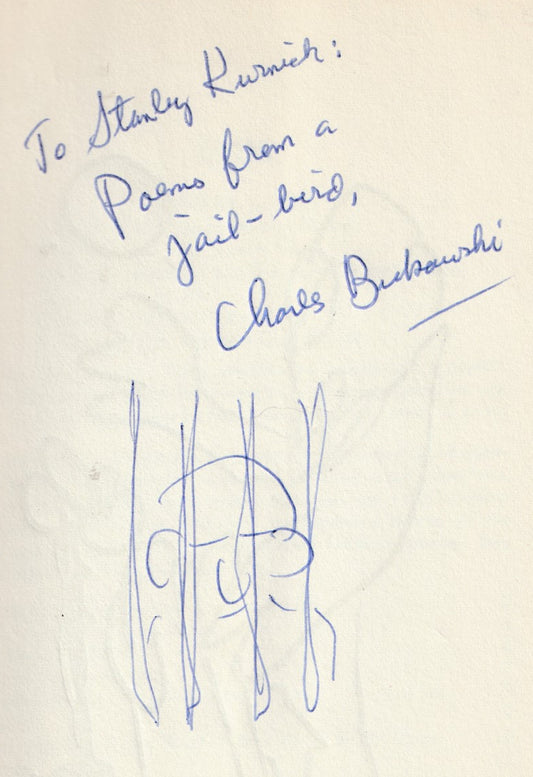 To Stanley Kurnick:
Poems from a
jail-bird,
Charles Bukowski